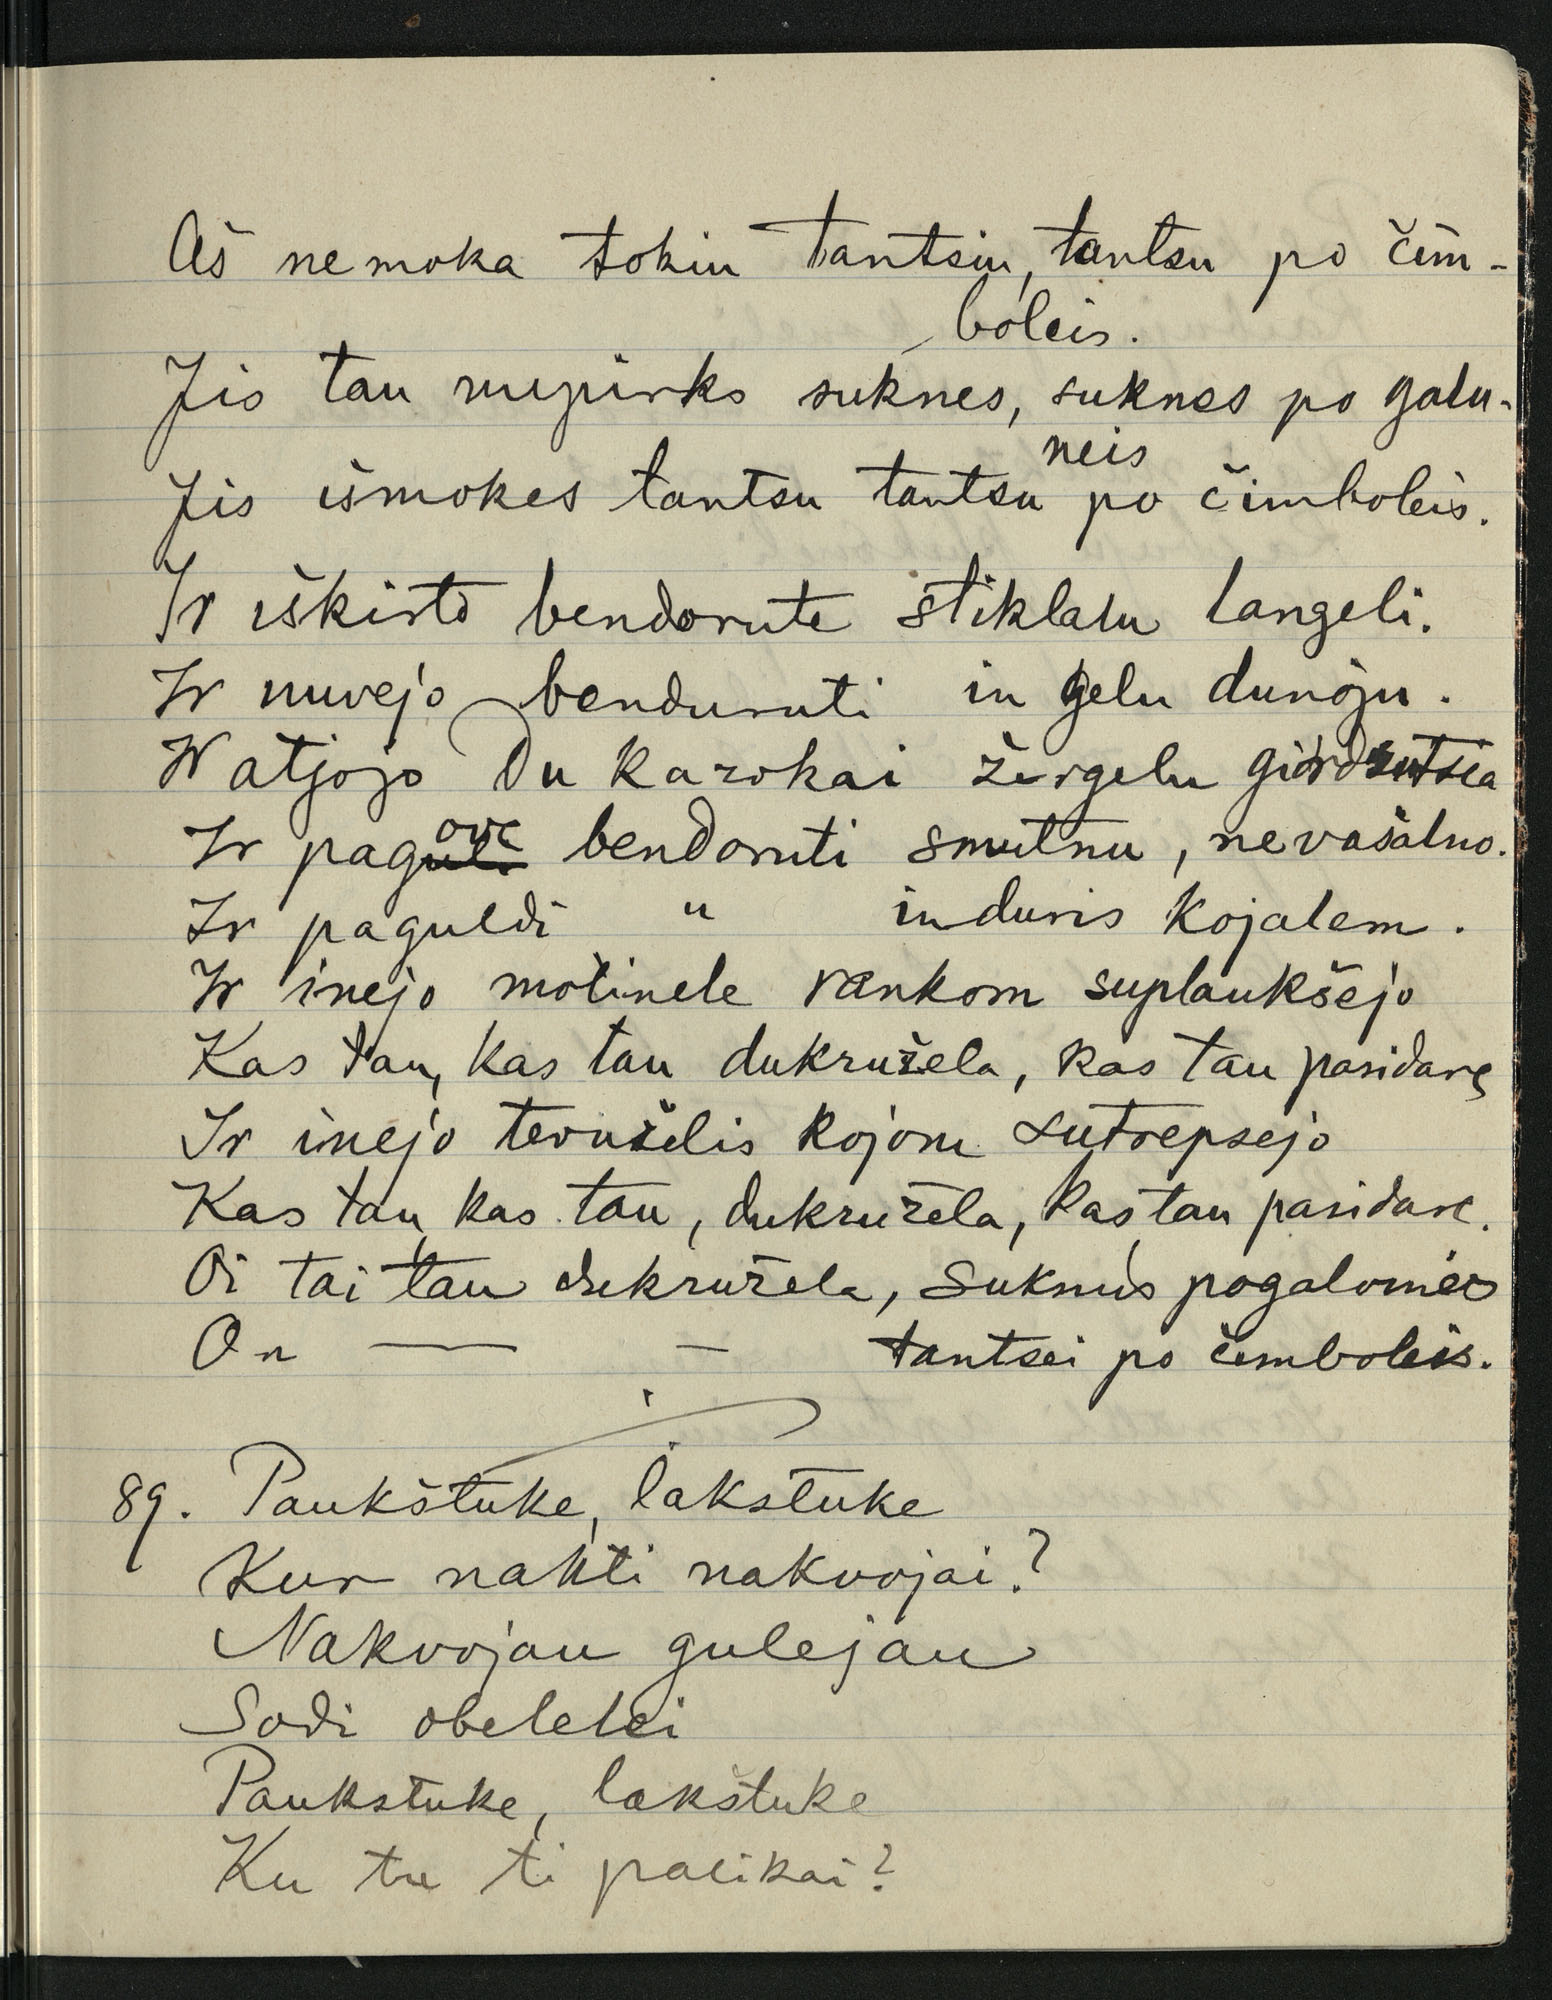 Aš nemoka tokiu tantsiu, tantsu po čim-
boleis.
Jis tau nupirks suknes, suknes po galu-
neis
Jis išmokes tantsu tantsu po čimboleis.
Ir iškirto bendorute stiklalu langeli.
Ir nuvejo benduruti in gelu dunoju.
Ir atjojo Du kazokai žirgelu girdzutsia
Ir pagove bendoruti smutnu, nevašalno.
Ir paguldi " in duris kojalem.
Ir inejo motinele rankom suplaukšejo
Kas tau, kas tau dukružela, kas tau pasidarę
Ir inejo terušelis kojom sutrepsejo
Kas tau, kas tau, dukružela, kas tau pasidare.
Oi tai tau dukružela, suknus pogalonies
On — — tantsei po čemboleis.
89. Paukštuke, lakstuke
Kur nakti nakvojai?
Nakvojau gulejau
Sodi obelelei
Paukstuke, lakštuke
Ku tu ti palikai?